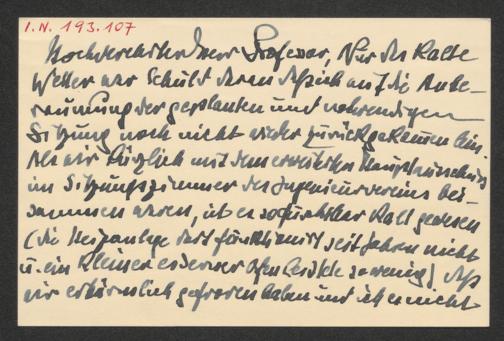 I.N. 193.107
Hochverehrter Herr Professor, Nur das kalte
Wetter war Schuld daran daß ich auf die Anbe-
raumung der geplanten und notwendigen
Sitzung noch nicht wieder zurückgekommen bin.
Als wir kürzlich mit dem erweiterten Hauptausschuss
im Sitzungszimmer des Ingenieurvereins bei-
sammen waren, ist es so furchtbar kalt gewesen
(die Heizanlage dort funktioniert seit Jahren nicht
u. ein kleiner eiserner Ofen zu wenig) daß
wir erbärmlich gefroren haben und ich es nicht